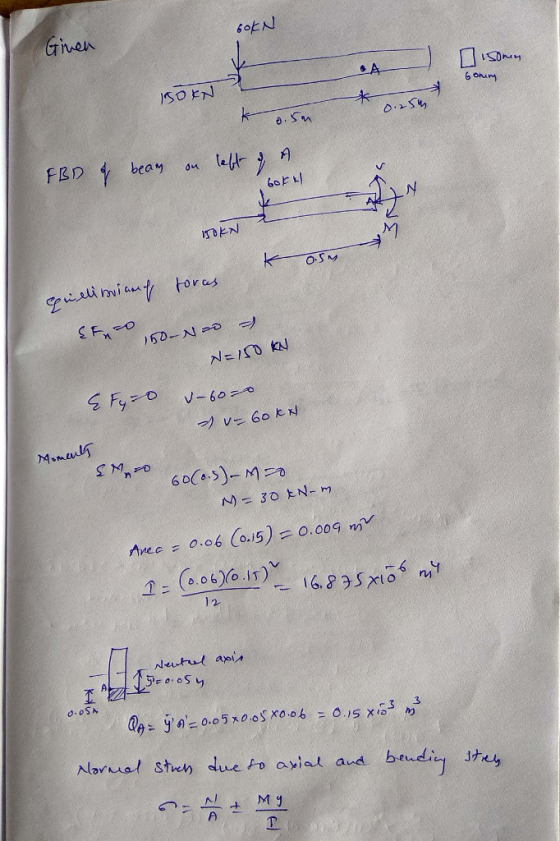 Given
60KN
150KN
A
0.5m
0.25m
150mm
60mm
FBD of beam on left of A
60KN
V
N
A
M
150KN
0.5m
Equilibrium of forces
ΣFx=0 150-N=0 ⇒
N=150 KN
ΣFy=0 V-60=0
⇒ V=60KN
Moments
60(0.5)-M=0
M=30 KN-m
Area = 0.06 (0.15) = 0.009 m²
I = (0.06)(0.15)² / 12 = 16.875×10⁻⁶ m⁴
Neutral axis
ȳ'=0.05m
A
0.05m
QA = ȳ'A' = 0.05×0.05×0.06 = 0.15×10⁻³ m³
Normal stress due to axial and bending stress
σ = N/A ± My/I